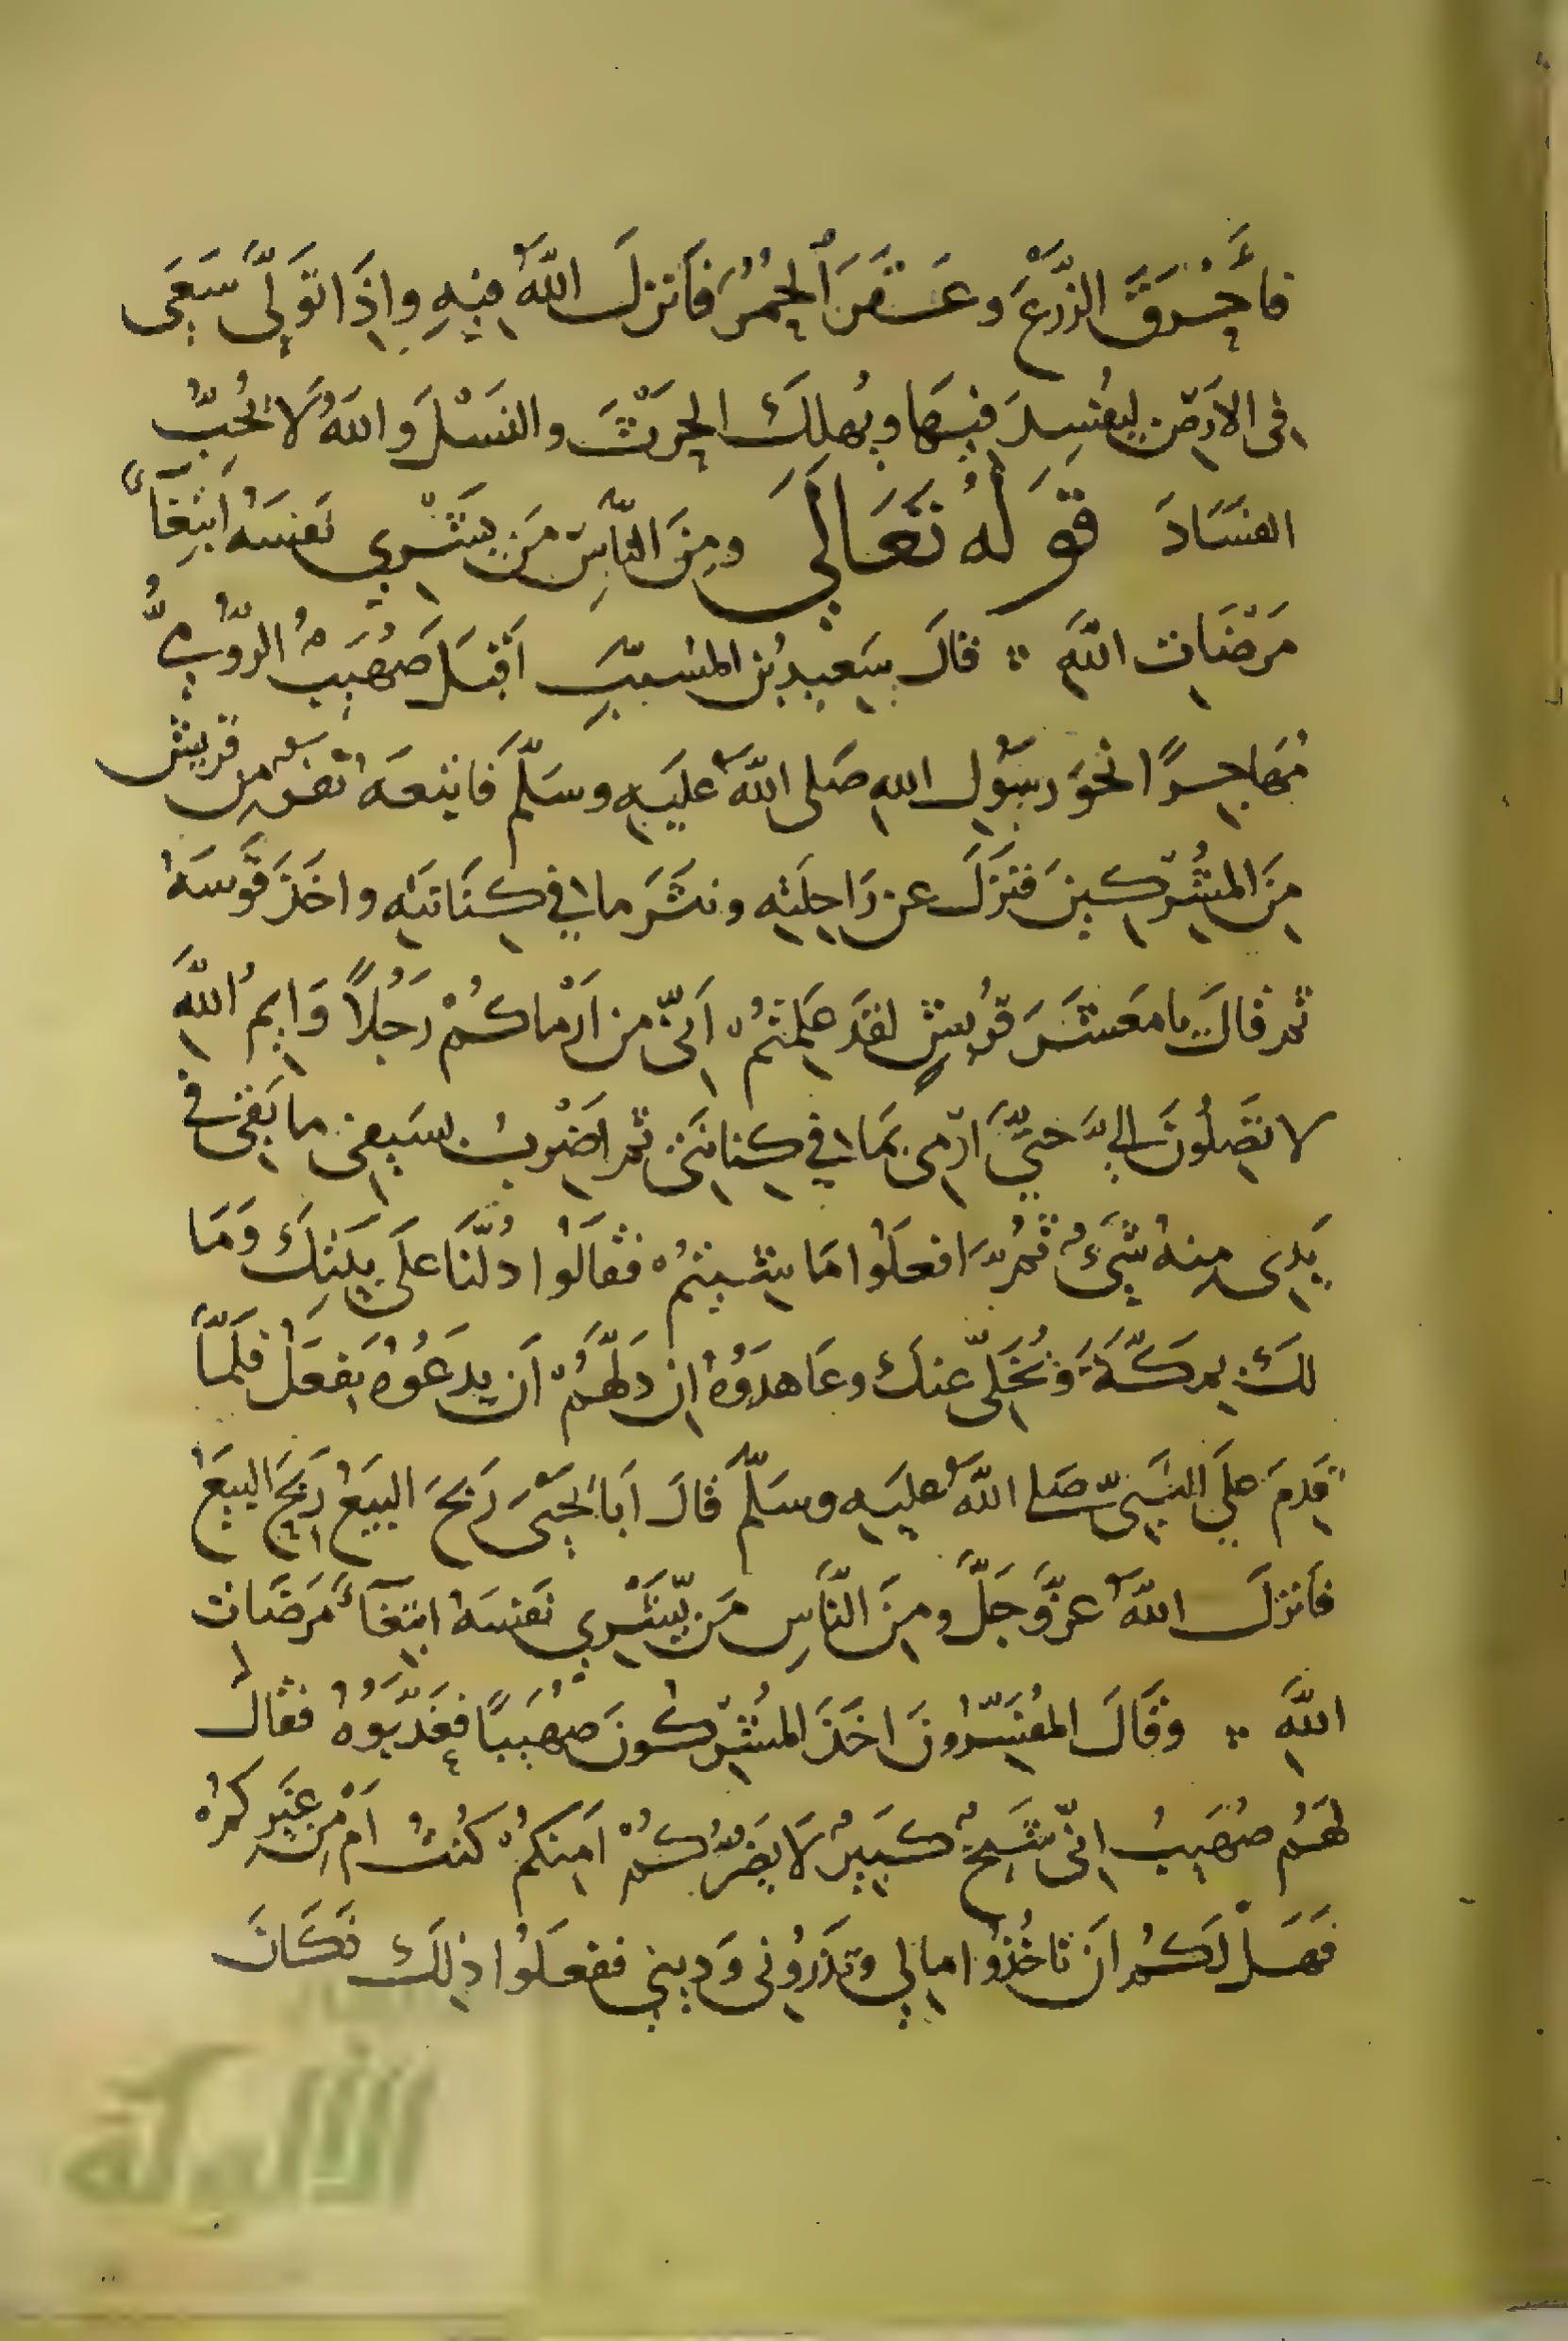 فأَحْرَقَ الزَّرْعَ وعَقَرَ ٱلحُمُرَ فَأَنزلَ اللَّهُ فيهِ وإِذَا تَوَلَّى سَعَى
فى الأرْضِ لِيُفْسِدَ فيهَا ويُهلِكَ الحَرْثَ والنَسْلَ واللهُ لَا يُحِبُّ
الفسَادَ قَولهُ تَعَالَي ومِنَ النَّاسِ مَن يَشْرِي نَفسَهُ ٱبْتِغَآءَ
مَرْضَاتِ اللَّهِ قالَ سَعِيدُ بْنُ المسُيبِّ أَقبَلَ صُهَيبٌ الرُّومِيُّ
مُهَاجِرًا نحْوَ رسُولِ اللهِ صَلى اللَّهُ عليَهِ وسَلَّمَ فَاتبعَهُ نَفرٌ مِن قريشٍ
مِنَ المُشْرِكينَ فنَزَلَ عن رَاحِلَتِهِ ونثَرَ ما في كِنَانَتِهِ واخَذَ قَوْسَهُ
ثم قالَ يا مَعشَرَ قُريشٍ لقَد عَلِمتُمْ أَنّى مِن أَرْماكُمْ رَجُلاً وَايمُ اللَّهِ
لا تَصِلُونَ إلىَّ حَتيَّ ارْمى بمَا في كِنانتى ثم اضْربُ بسَيفِى ما بَقىَ فى
يَدِى مِنهُ شَىءٌ ثُمَّ افعَلُوا مَا شِئتُمْ فقَالُوا دُلّنَا عَلَى بَيتِكَ وَمَا
لكَ بِمكّةَ وَنُخَلِّى عنكَ وعَاهدَوُهُ إِن دَلَّهُمْ أَن يدَعَوُهُ فَفعَلَ فلَمَّا
قَدِمَ علَي النَّبِىّ صَلى اللَّهُ عليَهِ وسَلَّمَ قَالَ أَبَا يحْيَى رَبحَ البيَعُ رَبحَ البيعُ
فأنزلَ اللَّهُ عزَّوَجَلَّ ومِنَ النَّاسِ مَن يَّشْرِي نَفسَهُ ابتغَآءَ مَرضَات
اللَّهِ وَقَالَ المُفَسِّرُونَ اخَذَ المُشْرِكُونَ صُهَيبًا فعَذَّبَوُهُ فقالَ
لهَمُ صُهَيبُ إِنّى شَيخٌ كَبيرٌ لَا يَضُرّكُمْ أَمِنكمُ كُنتُ أَمْ مِن غيَرِكمُ
فهَلْ لَكُم أَن تاخُذُوا مالِي وتذَرُونى وَدِيني ففعَلُوا ذلِكَ فَكَانَ
الألوكة